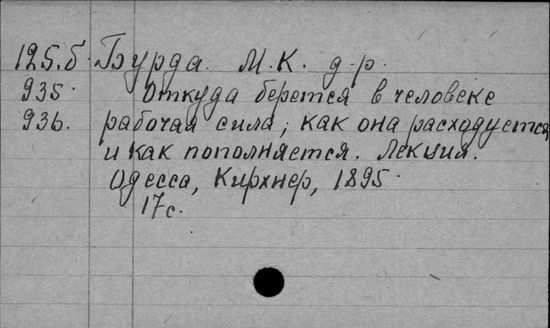 125.б. Бурда. М.К. д-р.
935. Откуда берется в человеке
936. рабочая сила, как она расходуется
и как пополняется. Лекция.
Одесса, Кирхнер, 1895.
17с.